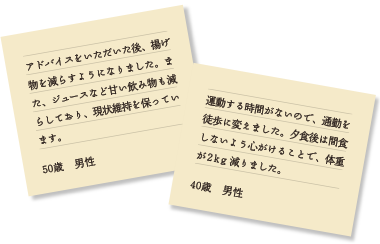 アドバイスをいただいた後、揚げ
物を減らすようになりました。ま
た、ジュースなど甘い飲み物も減
らしており、現状維持を保ってい
ます。
50歳　男性
運動する時間がないので、通勤を
徒歩に変えました。夕食後は間食
しないよう心がけることで、体重
が2kg減りました。
40歳　男性